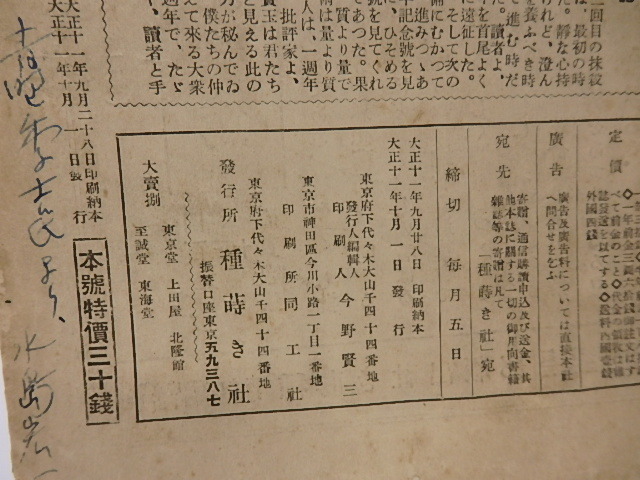 二回目の抹殺
は、最初の時
けれど、澄ん
を養ふべき時
て進む時だ
讀者よ、
を首尾よく
に遠征した。
そして次の
面にむかつて
進みつゝあ
年記念號を見
に、ひそめる
號を見てくれ
質より量で
であつた。果
術は量より質
人は、一週年
批評家よ、
寶玉は君たち
と見える此の
力が祕んでゐ
僕たちの仲
て來る大衆
週年で、たゞ
、讀者と手
定價
外國四錢
廣告
廣告及廣告料については直接本社
へ問合せをこふ
宛先
寄贈、通信購讀申込及び送金、其
他本誌に關する一切の御用向書籍
雜誌等の寄贈は凡て
「種蒔き社」宛
締切 每月五日
大正十一年九月廿八日 印刷納本
大正十一年十月一日 發行
東京府下代々木大山千四十四番地
發行人編輯人
印刷人 今野賢三
東京市神田區今川小路一丁目一番地
印刷所 同工社
東京府下代々木大山千四十四番地
發行所 種蒔き社
振替口座東京五九三八七
大賣捌
東京堂 上田屋 北隆館
至誠堂 東海堂
大正十一年九月二十八日印刷納本
大正十一年十月一日發行
本號特價三十錢